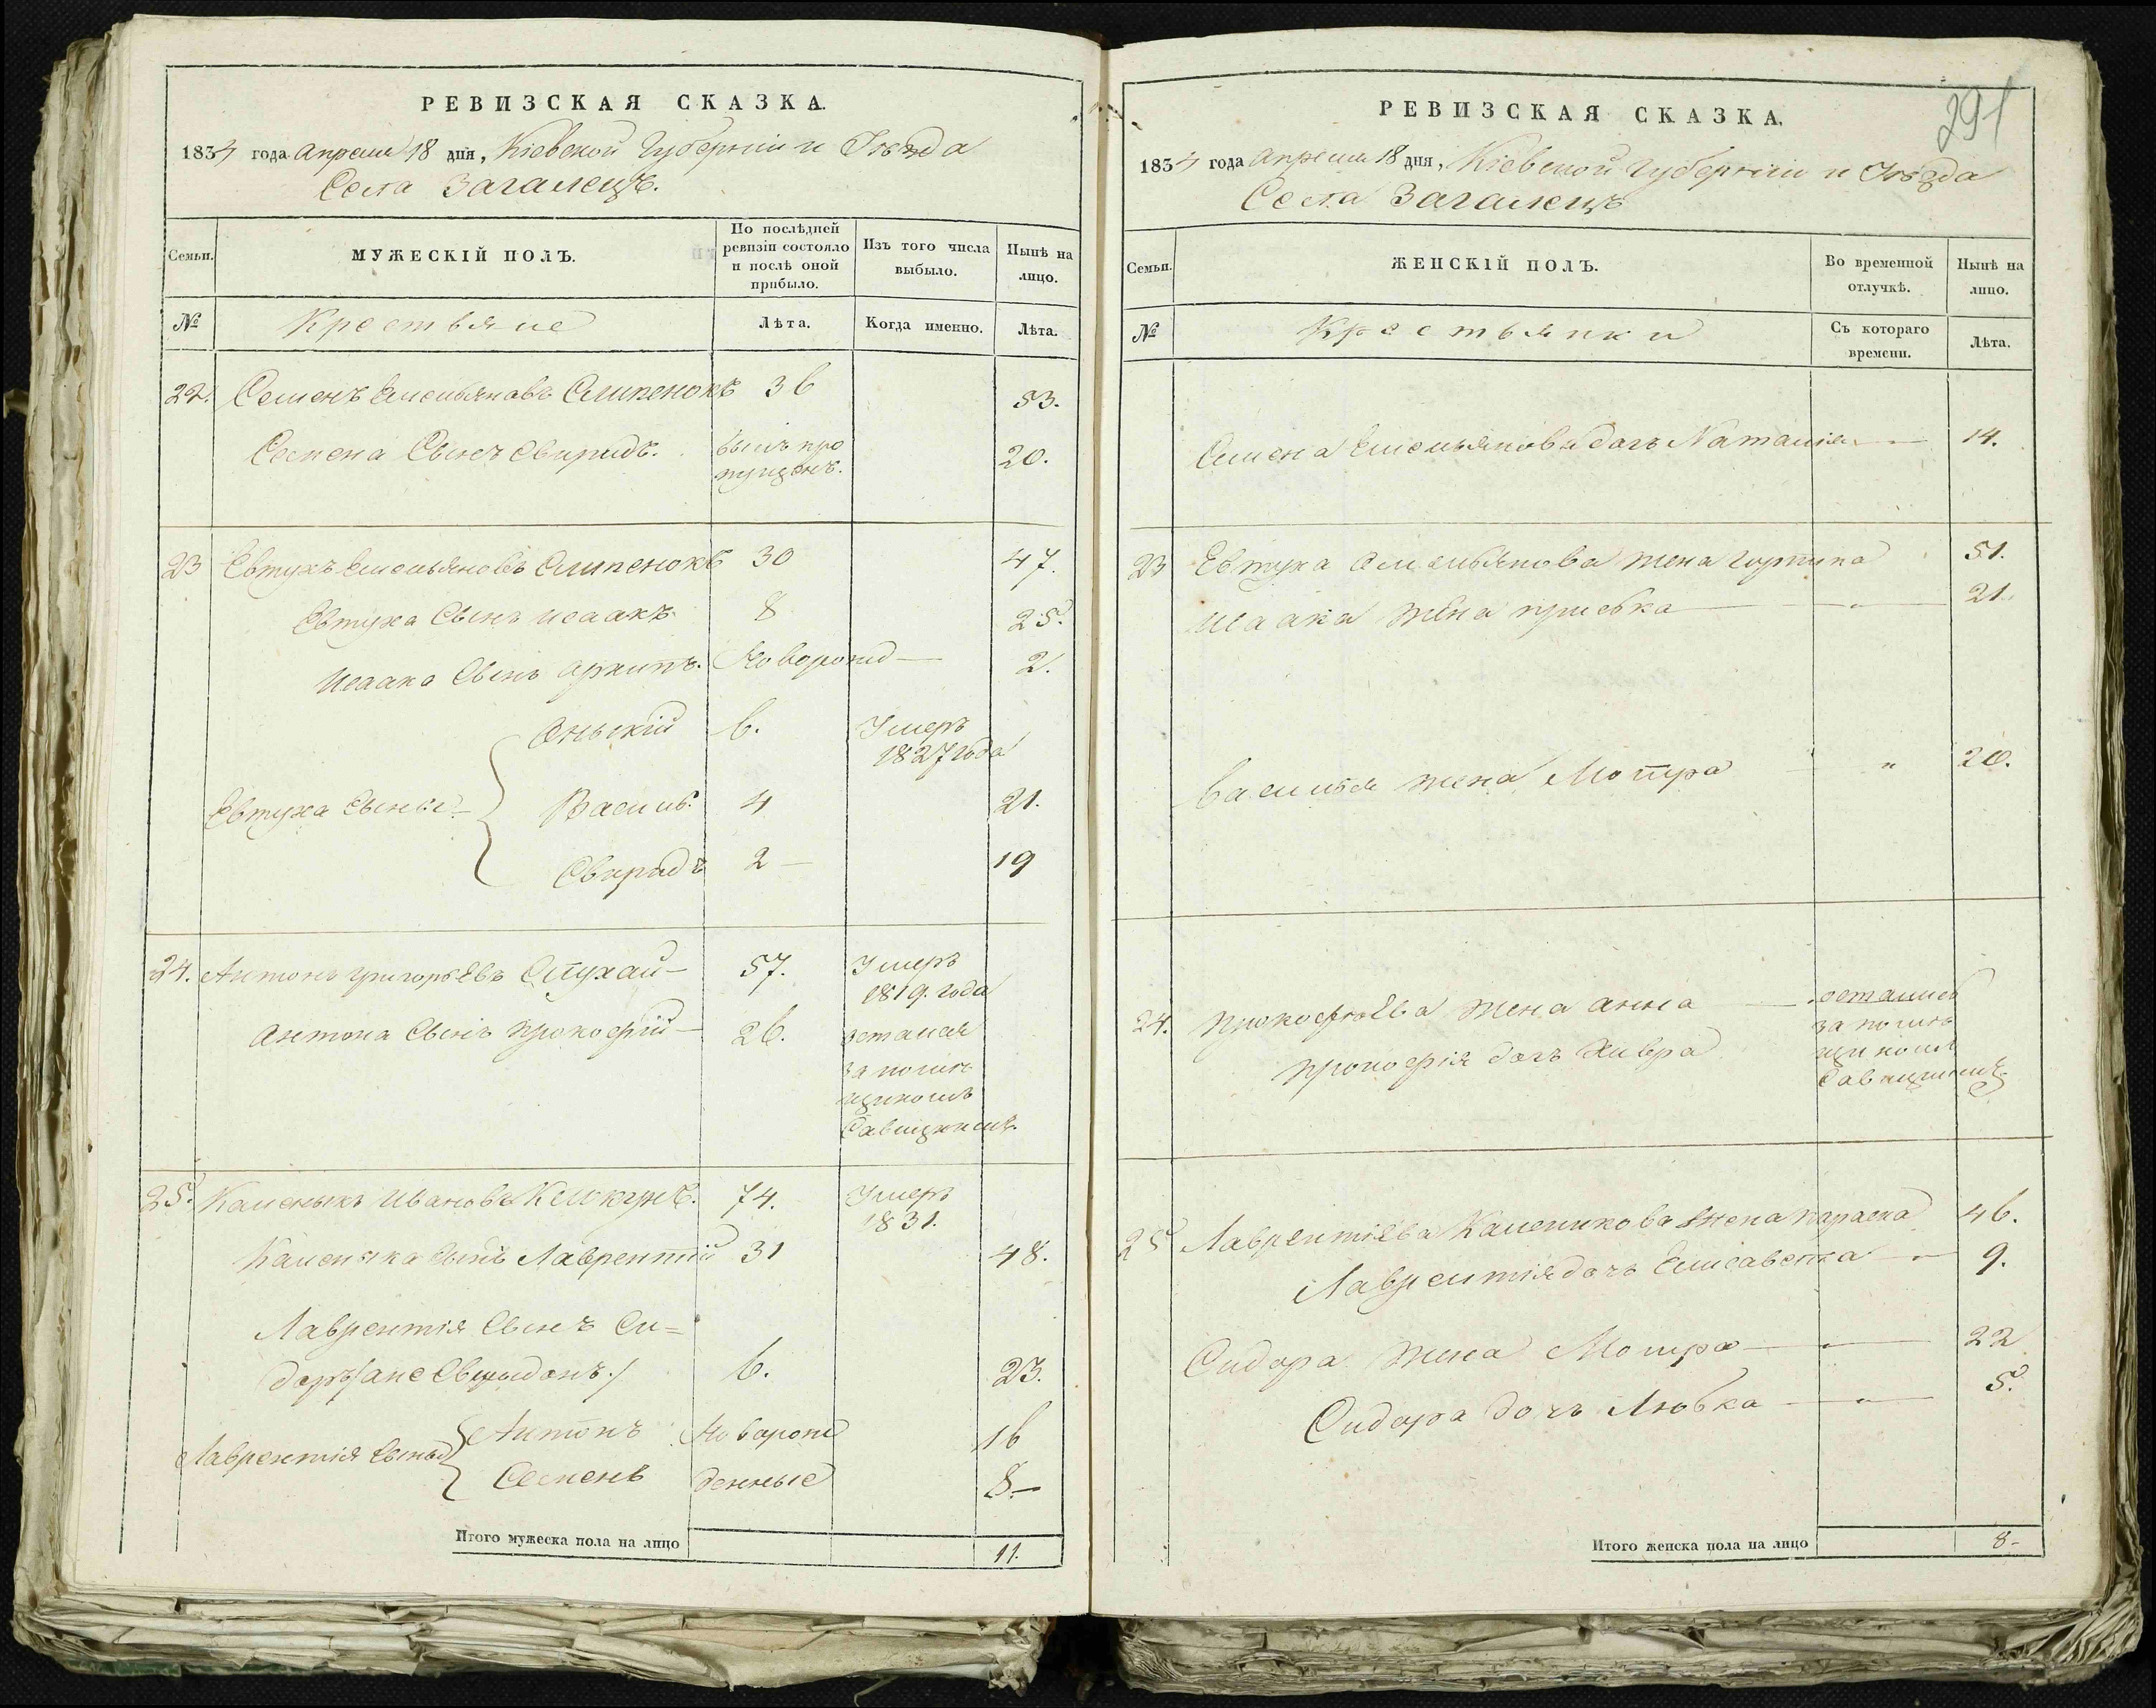 РЕВИЗСКАЯ СКАЗКА.
1834 года апреля 18 дня, Кіевской Губерніи и Уезда
Села Загалецъ.
Семьи.
МУЖЕСКІЙ ПОЛЪ.
По послѣдней ревизіи состояло и послѣ оной прибыло.
Изъ того числа выбыло.
Нынѣ на лицо.
№
Крестьяне
Лѣта.
Когда именно.
Лѣта.
22. Семенъ Емельяновъ Слипенокъ 36 53.
Семена Сынъ Свиридъ. былъ про 20.
пущенъ.
23 Евтухъ Емельяновъ Слипенокъ 30 47.
Евтуха Сынъ Исаакъ 8 25.
Исаака Сынъ Архипъ.Новорожд — 2.
6. Умеръ
1827 года
Евтуха Сыны
Василь. 4 21.
Свиридъ 2 — 19
24. Антонъ Григорьевъ 57. Умеръ
1819. года
Антона Сынъ Прокофій — 26. остался
за помѣ
щикомъ
Савицкимъ.
25. Каленыкъ Ивановъ 74. Умеръ
1831.
Каленыка Сынъ Лаврентій 31 48.
Лаврентія Сынъ Си=
доръ /ане Свиридонъ./ 6. 23.
Лаврентія Сыны
Антонъ Новорож 16
Семенъ денные 8. —
Итого мужеска пола на лицо 11.
291
РЕВИЗСКАЯ СКАЗКА.
1834 года апреля 18 дня, Кіевской Губерніи и Уезда
Села Загалецъ
Семьи.
ЖЕНСКІЙ ПОЛЪ.
Во временной отлучкѣ.
Нынѣ на лицо.
№
Крестьянки
Съ котораго времени.
Лѣта.
Семена Емельянова дочь Наталія — 14.
23 Евтуха Емельянова жена Горпина 51.
Исаака жена Приська — " — 21.
Василья жена Мотра " 20.
24. Прокофьева жена Анна — осталис
за помѣ
Прокофія дочь Хивра щикомъ
Савицкимъ
25 Лаврентіева Каленикова жена Параска 46.
Лаврентія дочь Елисаветта — " 9.
Сидора жена Мотра — " — 22
Сидора дочь Любка — " — 5.
Итого женска пола на лицо 8 -